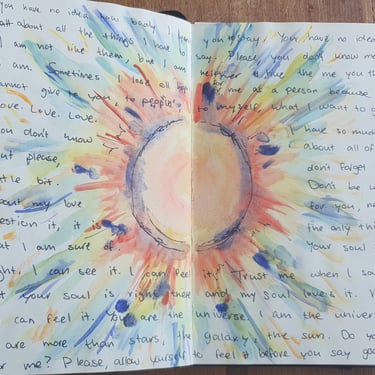 you have no idea how badly I
about all the things I have to
am not like them, one I am
I am. Sometimes I lose all
cannot give to you, to people,
Love. Love. Love.
you don't know
but please,
little bit.
about my love
question it, it is
that I am sure of.
right, I can see it. I can feel
that your soul is right there
can feel it. You are the
are more than stars, the
me? Please, allow yourself
you to stay. You have no idea
say. Please, you don't know me
the me you
for me as a person because
to myself, what I want to
I have so much
about all of
don't forget
Don't be
for you, ne
the only thin
Your soul
it. Trust me when I sa
and my soul loves it.
universe. I am the univer
galaxy, the sun. Do yo
to feel it before you say goo